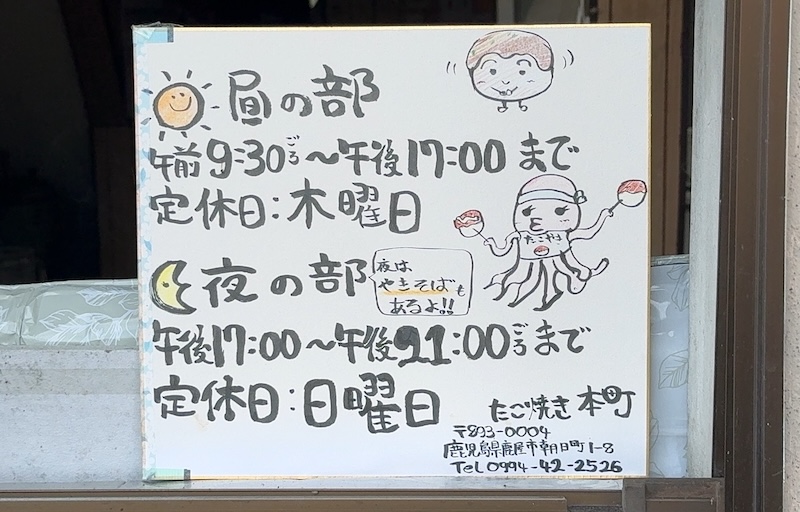 昼の部
午前9:30ごろ～午後17:00まで
定休日:木曜日
たこやき
夜の部
夜は
やきそばも
あるよ!!
午後17:00～午後21:00ごろまで
定休日:日曜日
たこ焼き本町
〒893-0004
鹿児島県鹿屋市朝日町1-8
Tel 0994-42-2526